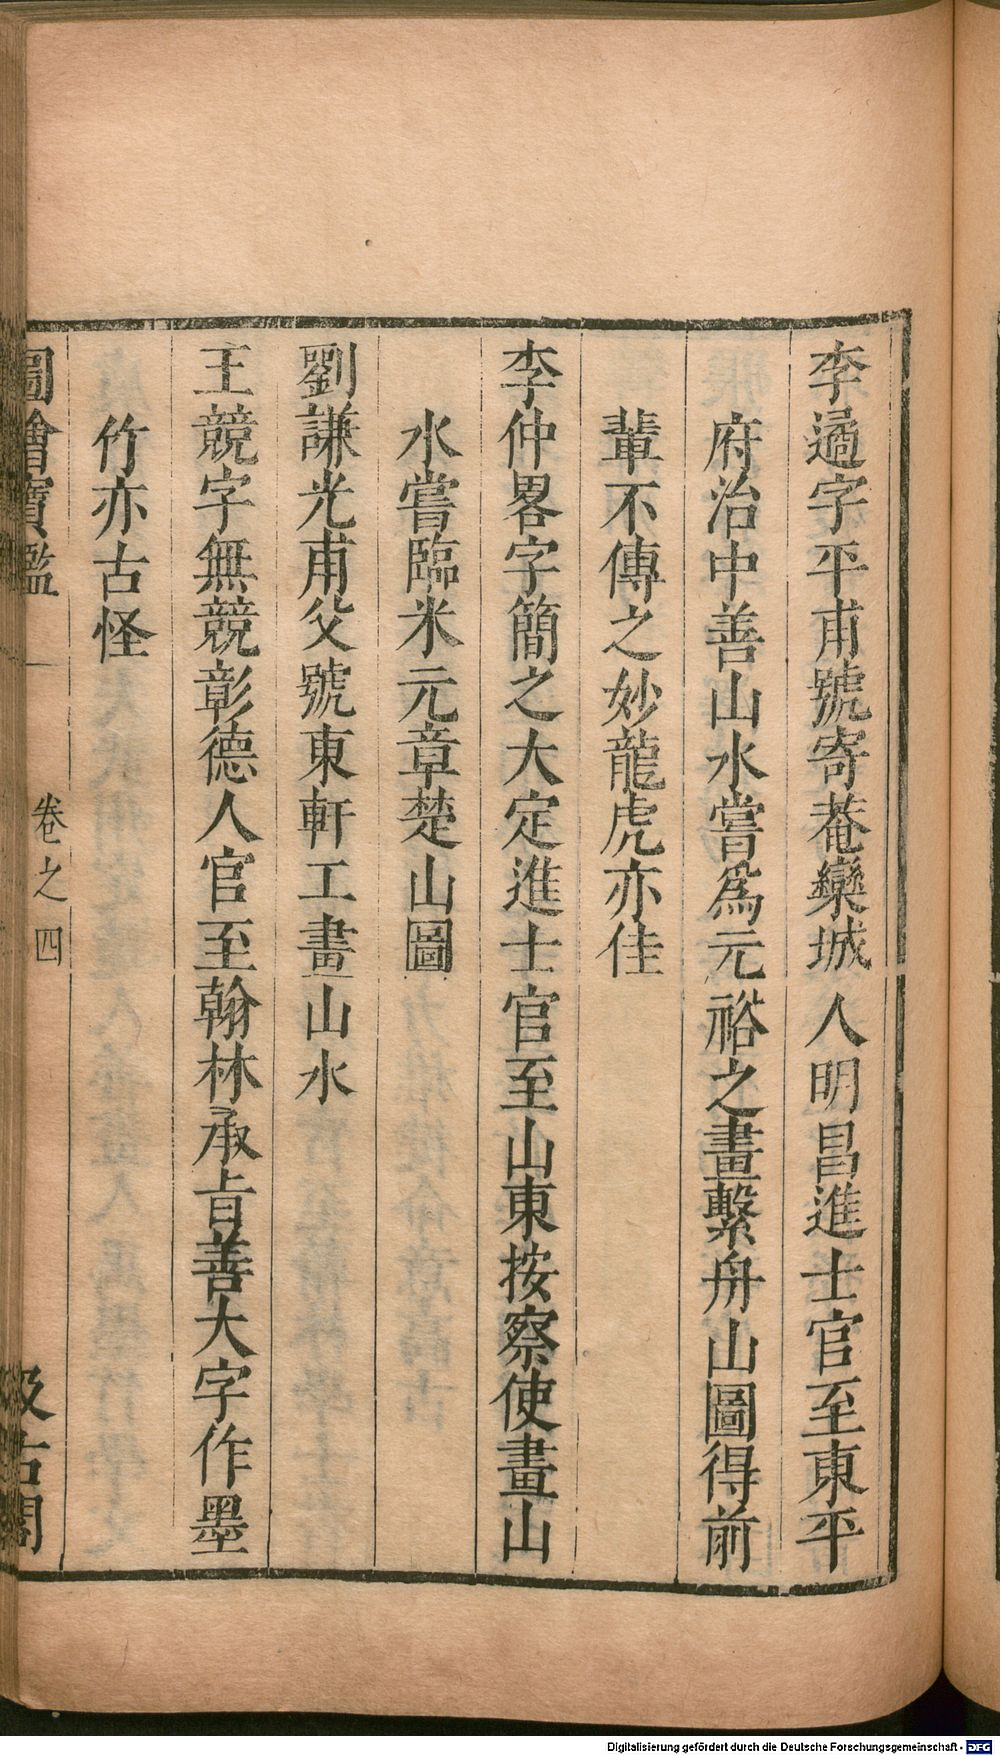 李遹字平甫號寄菴欒城人明昌進士官至東平
府治中善山水嘗爲元裕之畫繫舟山圖得前
輩不傳之妙龍虎亦佳
李仲畧字簡之大定進士官至山東按察使畫山
水嘗臨米元章楚山圖
劉謙光甫父號東軒工畫山水
王競字無競彰德人官至翰林承旨善大字作墨
竹亦古怪
圖繪寶鑑 卷之四 汲古閣
Digitalisierung gefördert durch die Deutsche Forschungsgemeinschaft - DFG